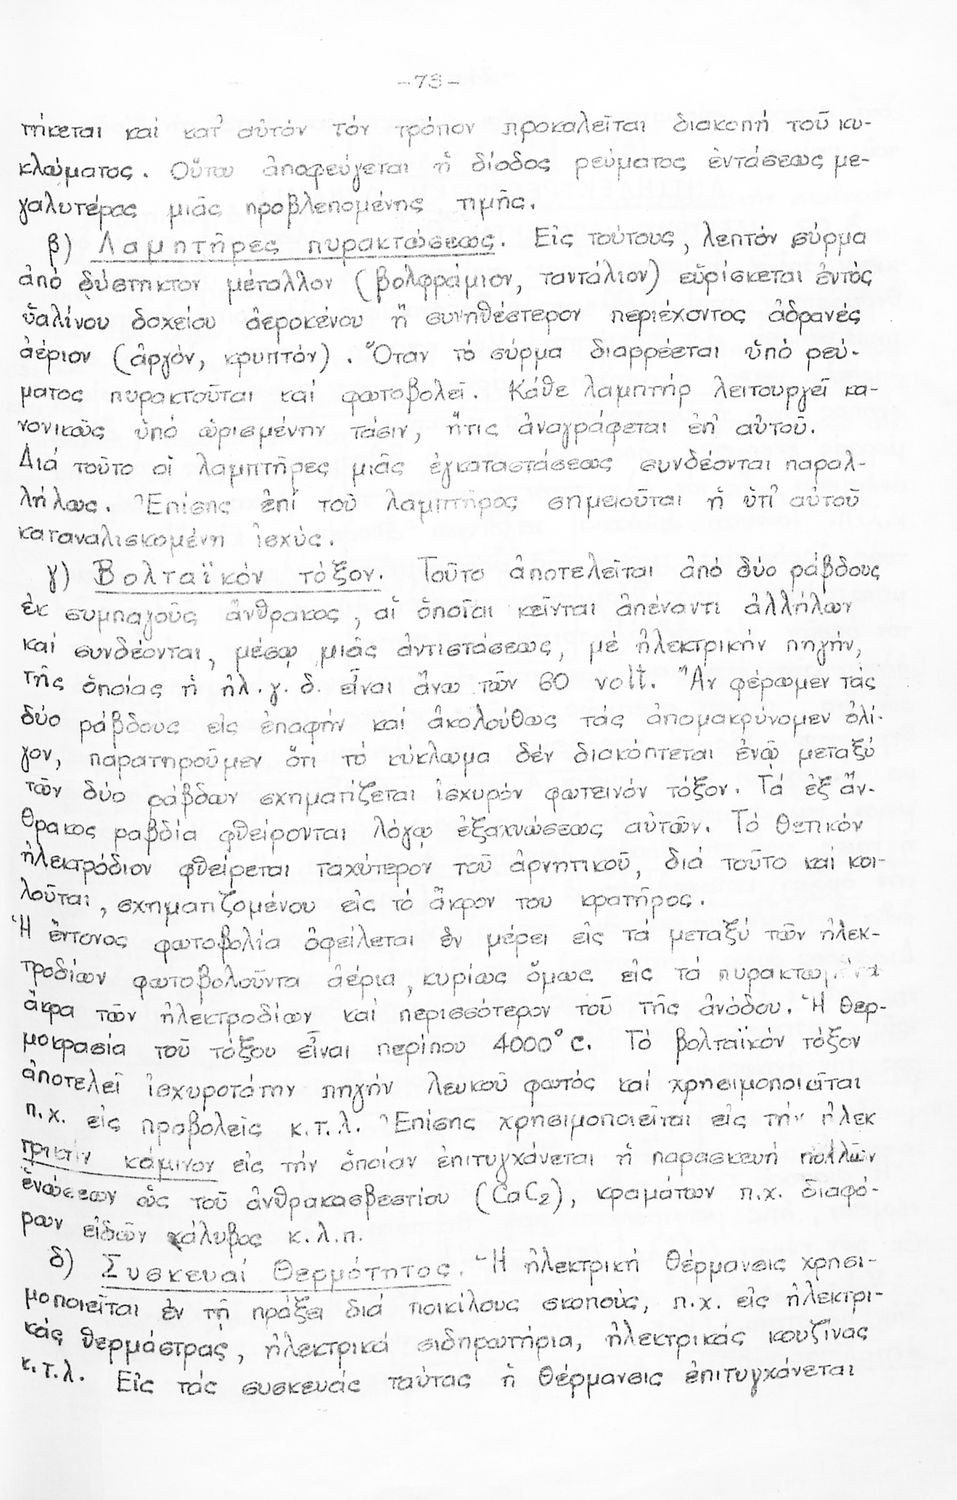 -73-
τήκεται καί κατ' αὐτόν τόν τρόπον προκαλεῖται διακοπή τοῦ κυ-
κλώματος. Οὕτω ἀποφεύγεται ἡ δίοδος ρεύματος ἐντάσεως με-
γαλυτέρας μιᾶς προβλεπομένης τιμῆς.
β) Λαμπτῆρες πυρακτώσεως. Εἰς τούτους, λεπτόν σύρμα
ἀπό δύστηκτον μέταλλον (βολφράμιον, ταντάλιον) εὑρίσκεται ἐντός
ὑαλίνου δοχείου ἀεροκένου ἤ συνηθέστερον περιέχοντος ἀδρανές
ἀέριον (ἀργόν, κρυπτόν). Ὅταν τό σύρμα διαρρέεται ὑπό ρεύ-
ματος πυρακτοῦται καί φωτοβολεῖ. Κάθε λαμπτήρ λειτουργεῖ κα-
νονικῶς ὑπό ὡρισμένην τάσιν, ἥτις ἀναγράφεται ἐπ' αὐτοῦ.
Διά τοῦτο οἱ λαμπτῆρες μιᾶς ἐγκαταστάσεως συνδέονται παραλ-
λήλως. Ἐπίσης ἐπί τοῦ λαμπτῆρος σημειοῦται ἡ ὑπ' αὐτοῦ
καταναλισκομένη ἰσχύς.
γ) Βολταϊκόν τόξον. Τοῦτο ἀποτελεῖται ἀπό δύο ράβδους
ἐκ συμπαγοῦς ἄνθρακος, αἱ ὁποῖαι κεῖνται ἀπέναντι ἀλλήλων
καί συνδέονται, μέσῳ μιᾶς ἀντιστάσεως, μέ ἠλεκτρικήν πηγήν,
τῆς ὁποίας ἡ ἠλ.γ.δ. εἶναι ἄνω τῶν 60 volt. Ἄν φέρωμεν τάς
δύο ράβδους εἰς ἐπαφήν καί ἀκολούθως τάς ἀπομακρύνομεν ὀλί-
γον, παρατηροῦμεν ὅτι τό κύκλωμα δέν διακόπτεται ἐνῷ μεταξύ
τῶν δύο ράβδων σχηματίζεται ἰσχυρόν φωτεινόν τόξον. Τά ἐξ ἄν-
θρακος ραβδία φθείρονται λόγῳ ἐξαχνώσεως αὐτῶν. Τό θετικόν
ἠλεκτρόδιον φθείρεται ταχύτερον τοῦ ἀρνητικοῦ, διά τοῦτο καί κοι-
λοῦται, σχηματιζομένου εἰς τό ἄκρον του κρατῆρος.
Ἡ ἔντονος φωτοβολία ὀφείλεται ἐν μέρει εἰς τά μεταξύ τῶν ἠλεκ-
τροδίων φωτοβολοῦντα ἀέρια, κυρίως ὅμως εἰς τά πυρακτωμένα
ἄκρα τῶν ἠλεκτροδίων καί περισσότερον τοῦ τῆς ἀνόδου. Ἡ θερ-
μοκρασία τοῦ τόξου εἶναι περίπου 4000°C. Τό βολταϊκόν τόξον
ἀποτελεῖ ἰσχυροτάτην πηγήν λευκοῦ φωτός καί χρησιμοποιεῖται
π.χ. εἰς προβολεῖς κ.τ.λ. Ἐπίσης χρησιμοποιεῖται εἰς τήν ἠλεκ
τρικήν κάμινον εἰς τήν ὁποίαν ἐπιτυγχάνεται ἡ παρασκευή πολλῶν
ἑνώσεων ὡς τοῦ ἀνθρακασβεστίου (CaC2), κραμάτων π.χ. διαφό-
ρων εἰδῶν χάλυβος κ.λ.π.
δ) Συσκευαί θερμότητος. Ἡ ἠλεκτρική θέρμανσις χρησι-
μοποιεῖται ἐν τῇ πράξει διά ποικίλους σκοπούς, π.χ. εἰς ἠλεκτρι-
κάς θερμάστρας, ἠλεκτρικά σιδηρωτήρια, ἠλεκτρικάς κουζίνας
κ.τ.λ. Εἰς τάς συσκευάς ταύτας ἡ θέρμανσις ἐπιτυγχάνεται